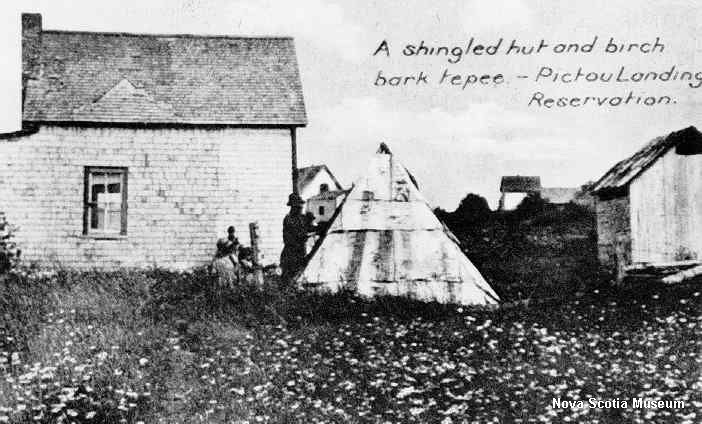 A shingled hut and birch
bark tepee. - Pictou Landing
Reservation.
Nova Scotia Museum